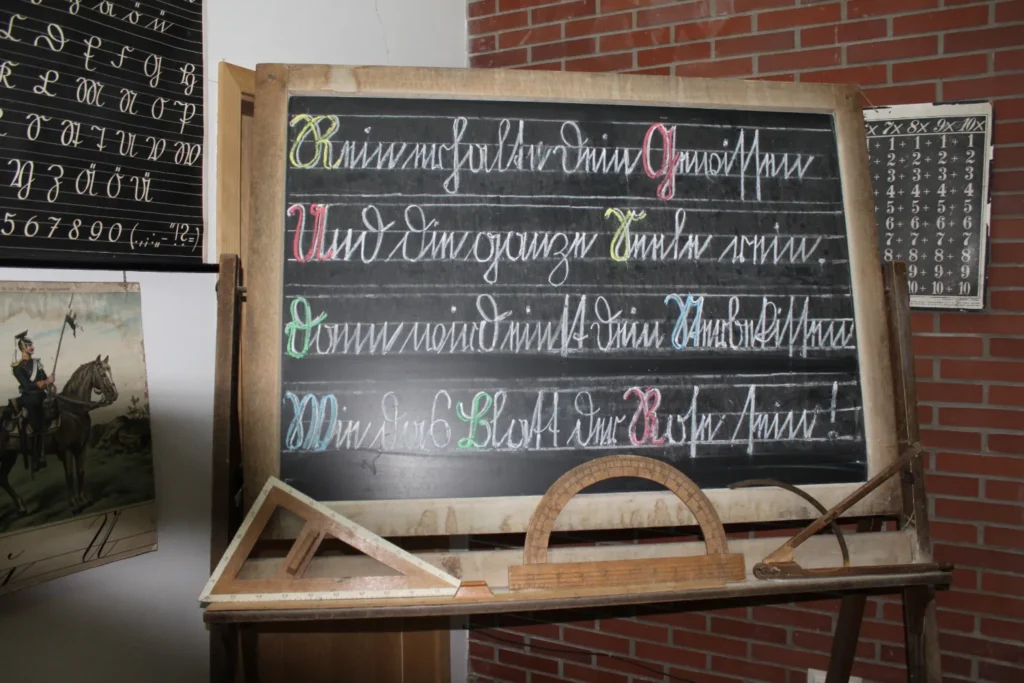 ä ö ü
D E F G H
K L M N O P
S St T U V W
Y Z Ä Ö Ü
5 6 7 8 9 0 (.,:;-"!?=)
Rein erhalte dein Gewissen
Und die ganze Seele rein.
Dann wird einst dein Sterbekissen
Wie das Blatt der Rose sein!
7x 8x 9x 10x
1 + 1 + 1 1
2 + 2 + 2 2
3 + 3 + 3 3
4 + 4 + 4 4
5 + 5 + 5 5
6 + 6 + 6 6
7 + 7 + 7 7
8 + 8 + 8
9 + 9
10 + 10
U